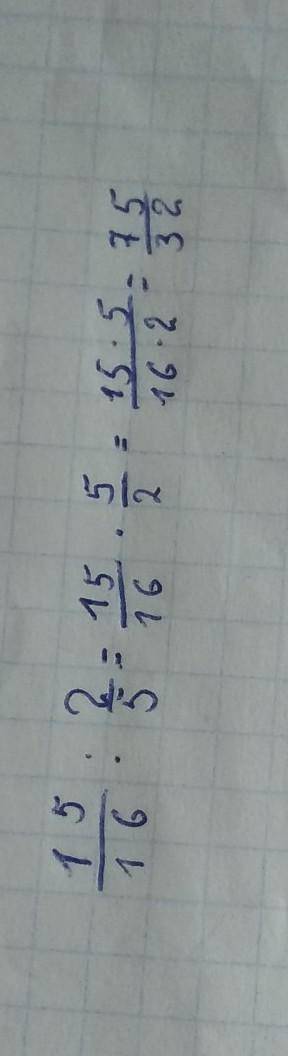 15/16 : 2/5 = 15/16 · 5/2 = 15·5/16·2 = 75/32